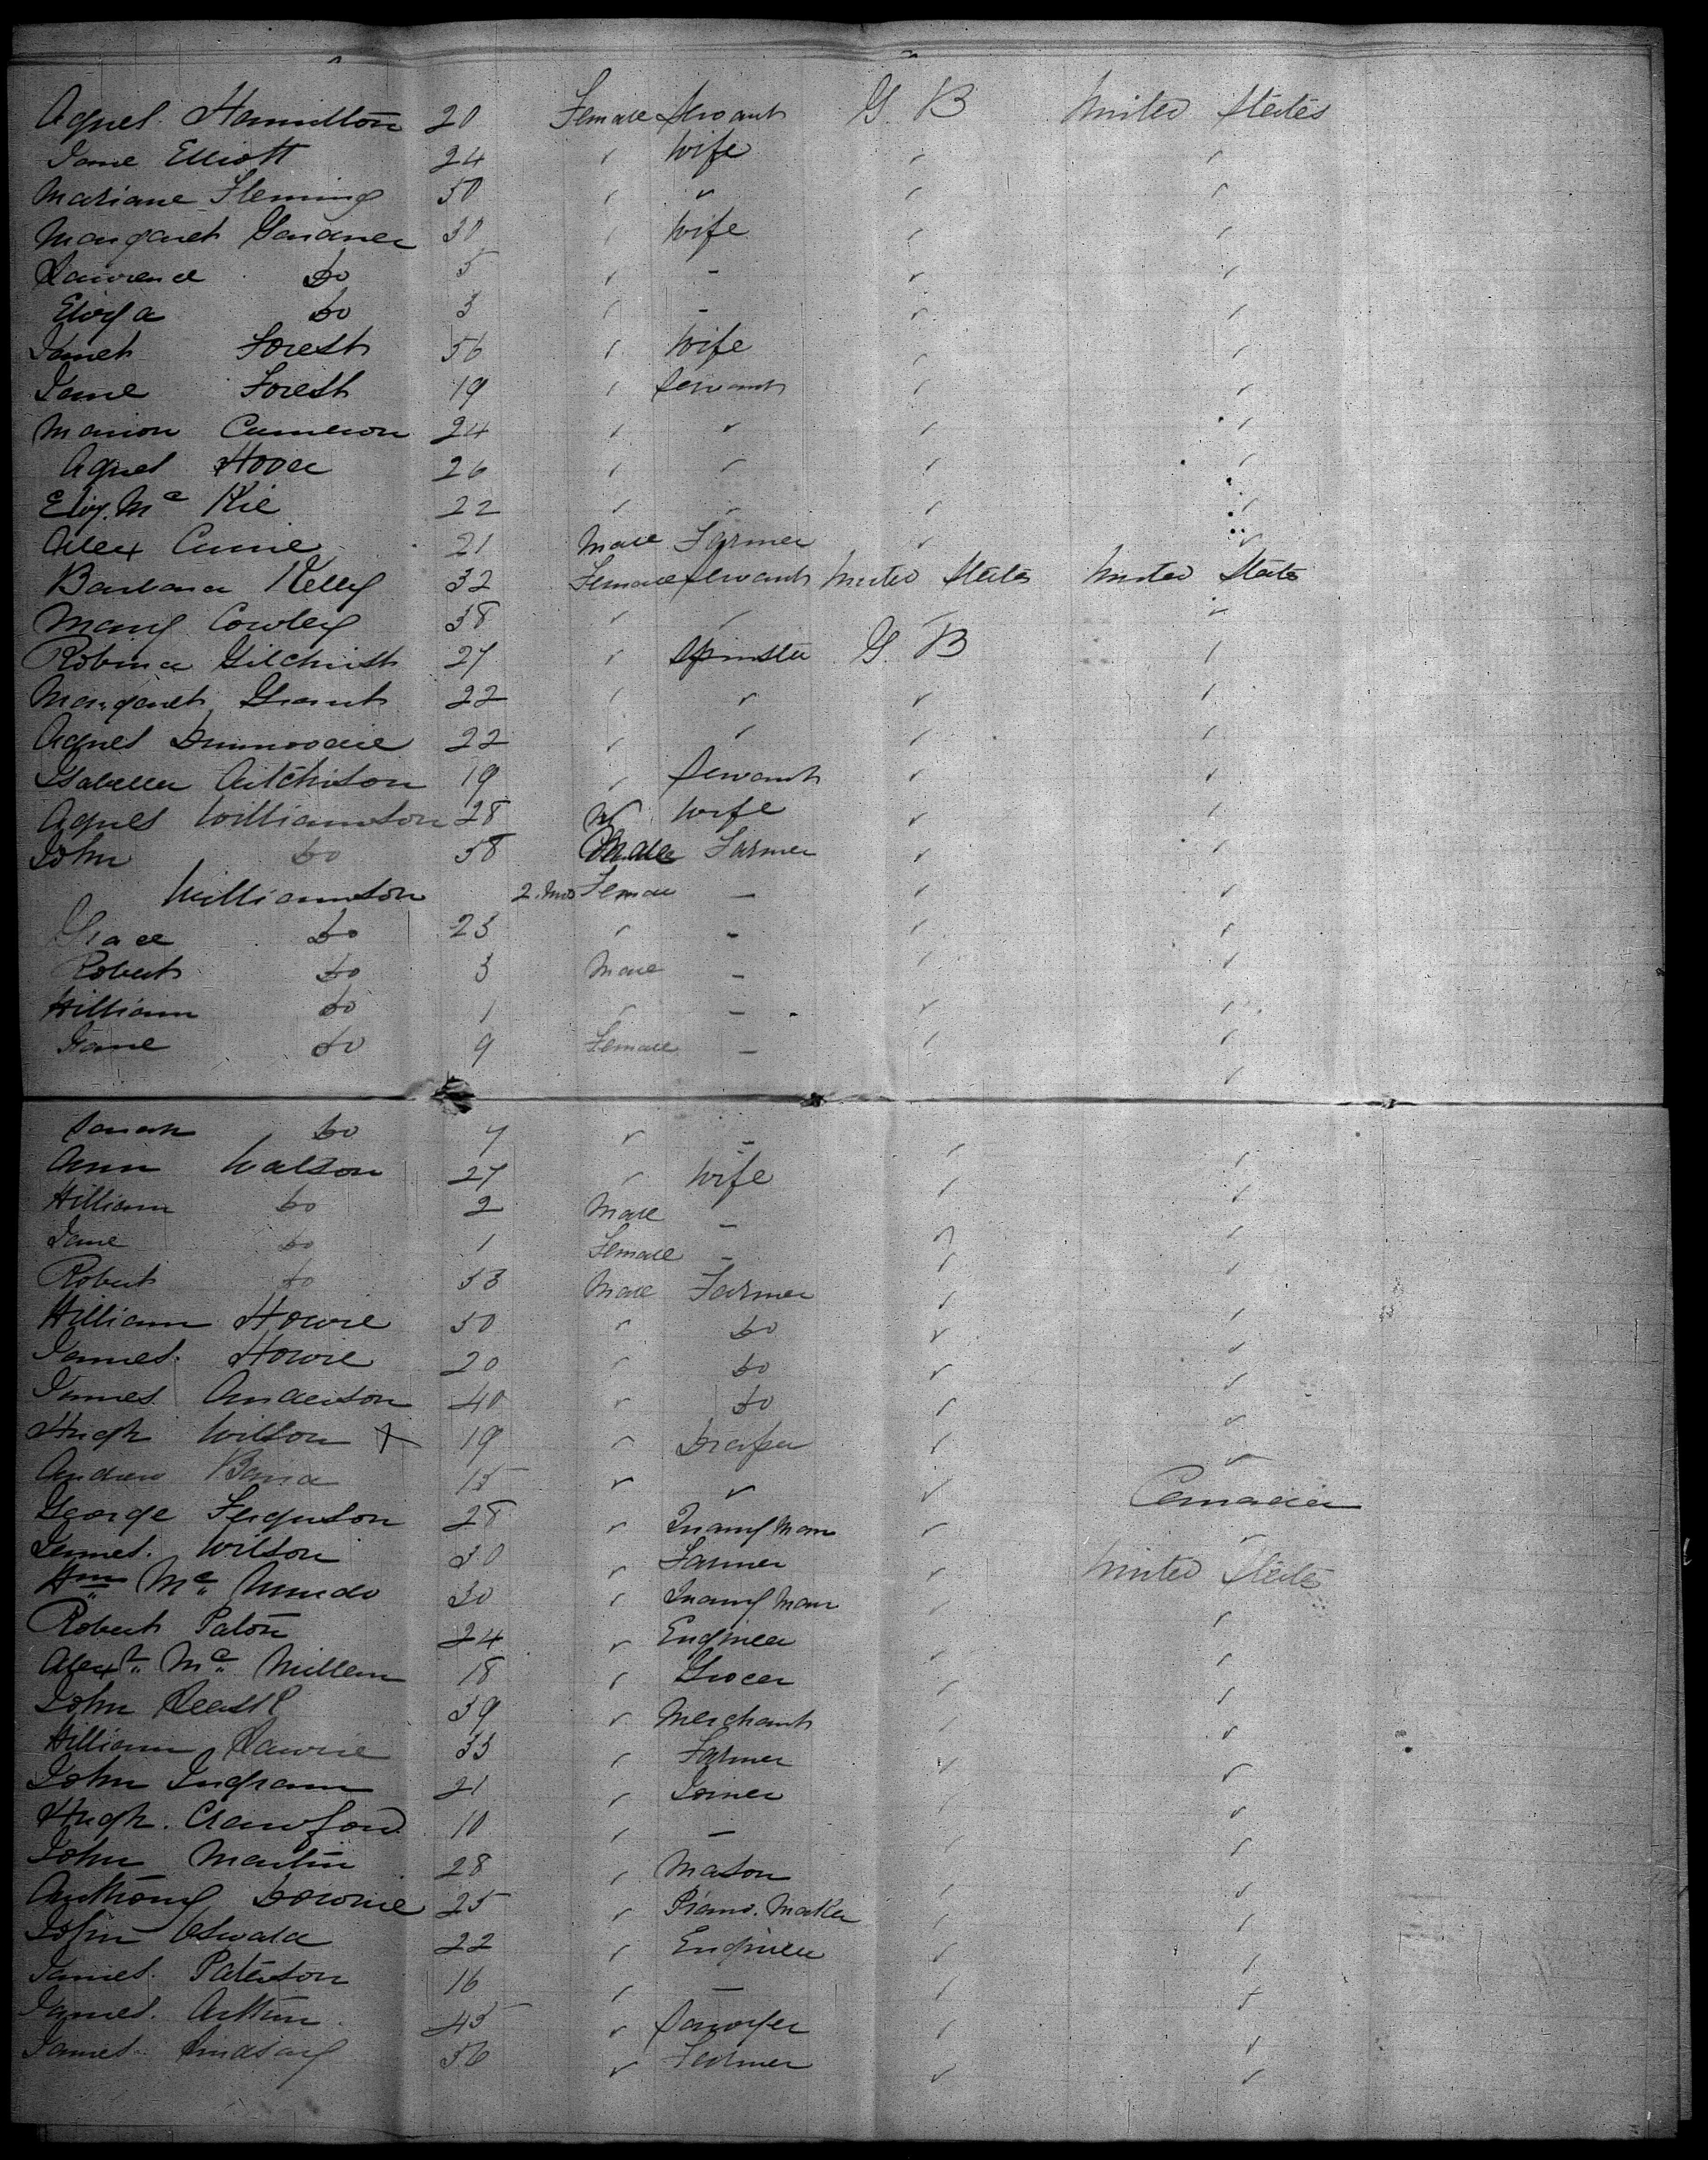 Agnes Hamilton 20 Female Servant G. B United States
Jane Elliott 24 " Wife " "
Mariane Fleming 50 " " " "
Margaret Gardner 30 " Wife " "
Lawrence Do 5 " - " "
Eliza Do 3 " - " "
Janet Forest 56 " Wife " "
Jane Forest 19 " Servant " "
Marion Cameron 24 " " " "
Agnes Hood 26 " " " "
Eliz. Mc Kie 22 " " " "
Alex Currie 21 Male Farmer " "
Barbara Kelly 32 Female Servant United States United States
Mary Cowley 38 " " "
Robina Gilchrist 27 " Spinster G. B "
Margaret Grant 22 " " " "
Agnes 22 " " " "
Isabella Aitchison 19 " Servant " "
Agnes Williamson 28 " Wife " "
John Do 38 Male Farmer " "
Williamson 2. mo Female - " "
Grace Do 23 " - " "
Robert Do 3 Male - " "
William Do 1 " - " "
Jane Do 9 Female - " "
Sarah Do 7 " - " "
Ann Watson 27 " Wife " "
William Do 2 Male - " "
Jane Do 1 Female - " "
Robert Do 33 Male Farmer " "
William Howie 50 " Do " "
James Howie 20 " Do " "
James Anderson 40 " Do " "
Hugh Wilson 19 " Draper " "
Andrew Baird 15 " " " Canada
George Ferguson 28 " " "
James Wilson 30 " Farmer " United States
Wm Mc Murdo 30 " " "
Robert Paton 24 " Engineer " "
Alexr Mc Millan 18 " Grocer " "
John 39 " Merchant " "
William Lawrie 33 " Farmer " "
John Ingram 21 " Joiner " "
Hugh. Crawford 10 " - " "
John Martin 28 " Mason " "
Anthony Downie 25 " Piano. Maker " "
John Oswald 22 " Engineer " "
James. Paterson 16 " - " "
James. 45 " Sawyer " "
James. Lindsay 56 " Farmer " "